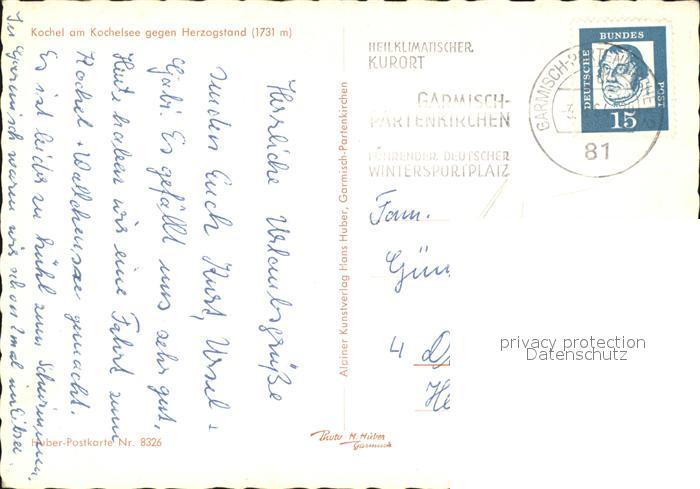 Kochel am Kochelsee gegen Herzogstand (1731 m)
Herzliche Urlaubsgrüße
senden Euch Kurt, Ursel +
Gabi. Es gefällt uns sehr gut.
Heute haben wir eine Fahrt zum
Kochel + Walchensee gemacht.
Es ist leider zu kühl zum Schwimmen.
In Garmisch waren wir schon 2mal im
Huber-Postkarte Nr. 8326
Alpiner Kunstverlag Hans Huber, Garmisch-Partenkirchen
Photo H. Huber
Garmisch
HEILKLIMATISCHER
KURORT
GARMISCH-
PARTENKIRCHEN
FÜHRENDER DEUTSCHER
WINTERSPORTPLATZ
GARMISCH-PARTENKIRCHEN
81
DEUTSCHE
BUNDES
POST
15
Fam.
Gün
4 D
He
privacy protection
Datenschutz